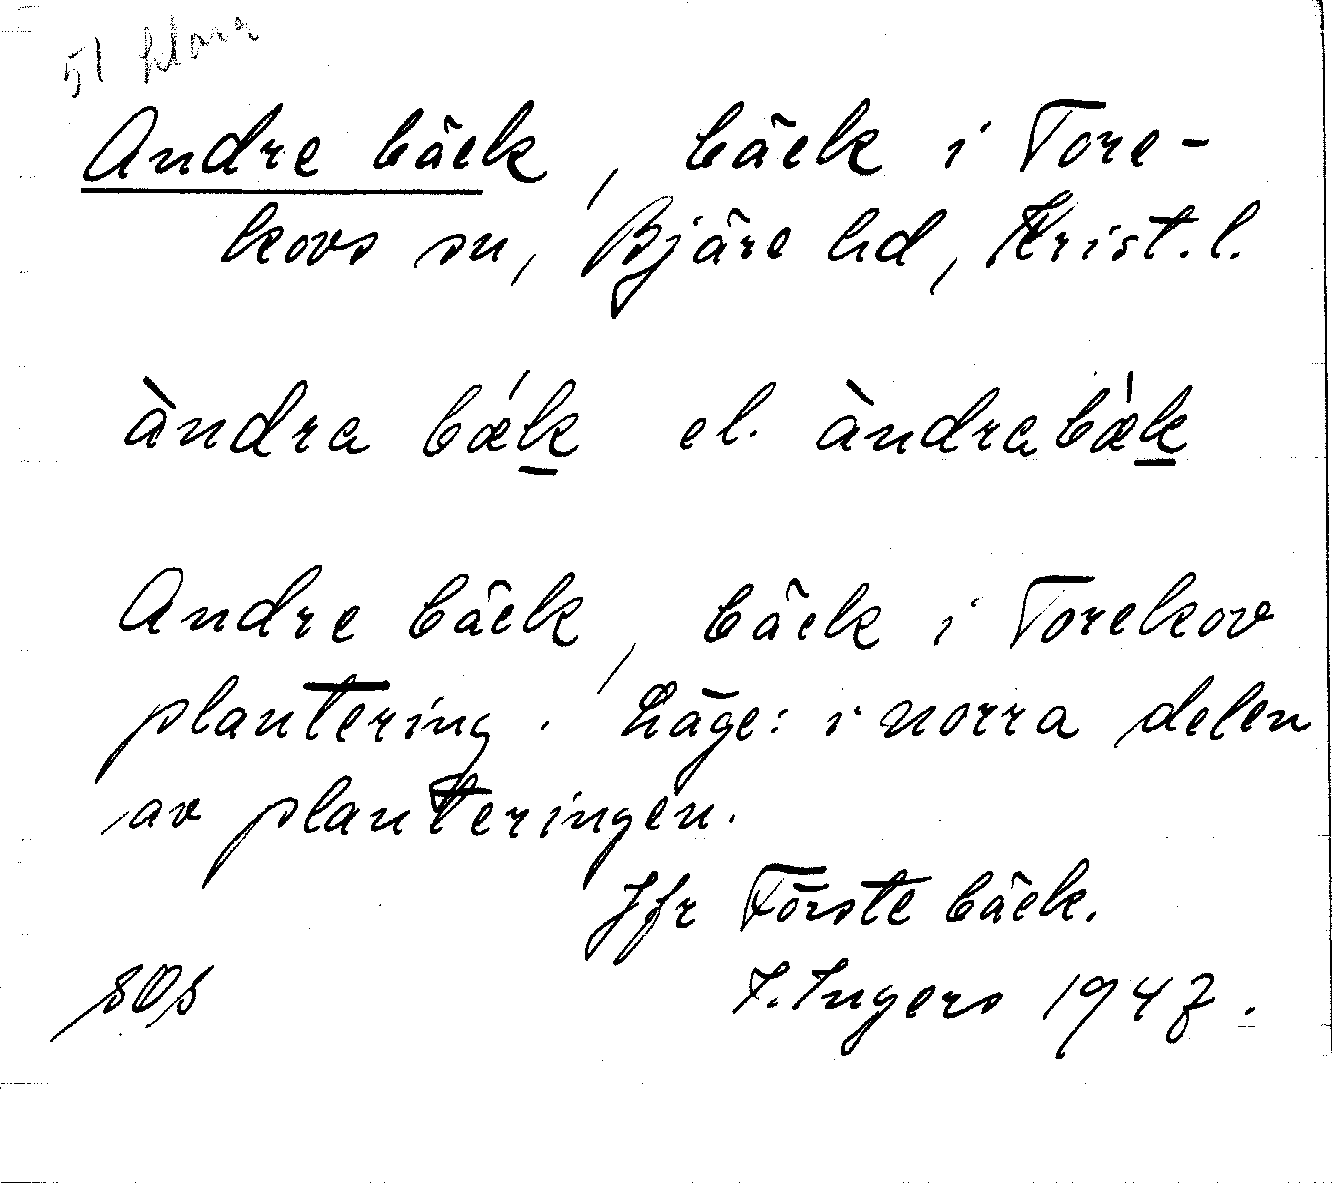 51 klara
Andre bäck, bäck i Tore-
kovs sn, Bjäre hd, Krist. l.
àndra bǽk el. àndrabæ̍k
Andre bäck, bäck i Torekov
plantering. Läge: i norra delen
av planteringen.
Jfr Förste bäck.
I. Ingers 1947.